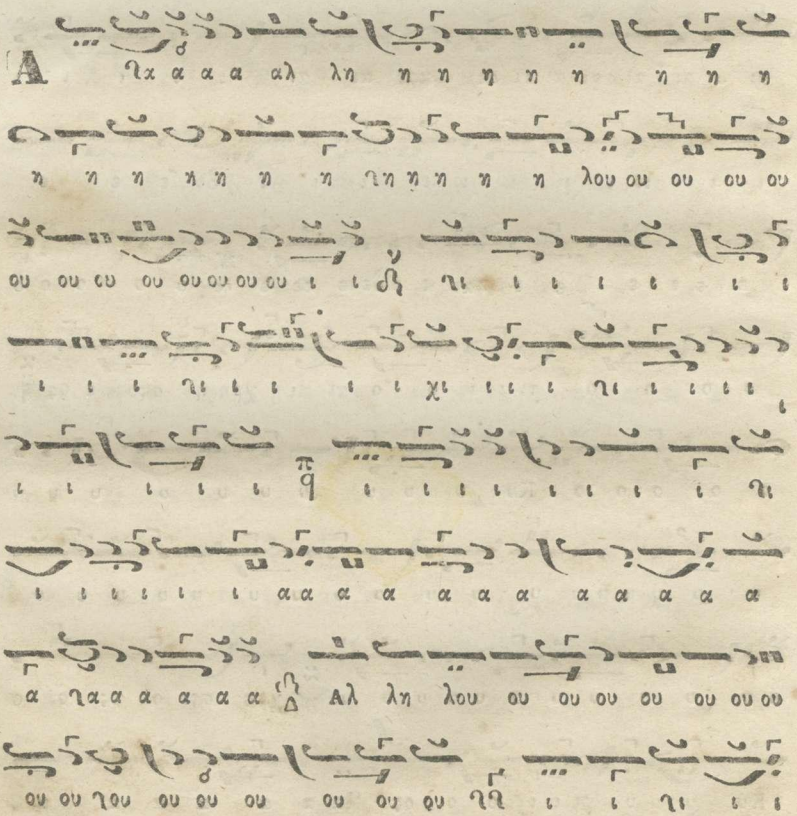 Α χα α α α αλ λη η η η η η η η η
η η η η η η η χη η η η η λου ου ου ου ου
ου ου ου ου ου ου ου ου ι ι χι ι ι ι ι ι ι
ι ι ι χι ι ι ι ι ι χι ι ι ι χι ι ι ι ι ι
ι ι ι ι ι π q ι ι ι ι ι ι ι ι χι
ι ι ι ι ι ι α α α α α α α α α α α
α χα α α α α α Δ Αλ λη λου ου ου ου ου ου ου ου
ου ου χου ου ου ου ου ου ου ι ι χι ι ι